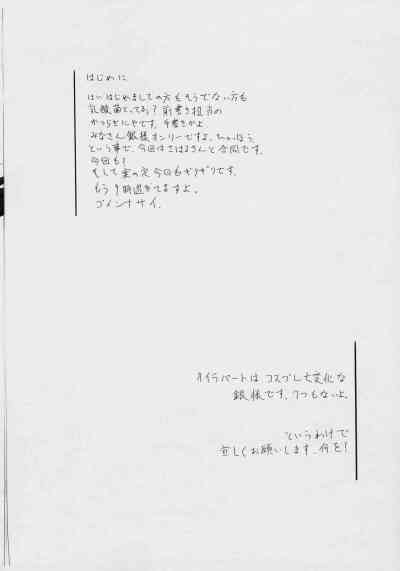 はじめに
はい、はじめましての方もそうでない方も
乳酸菌とってるぅ？前書き担当の
です。手書きかよ
みなさん銀様オンリーですよ、
という事で、今回はさはらさんと合同です。
今回も！
そして案の定今回もギリギリです。
もう9時過ぎてますよ。
ゴメンナサイ。
パートは コスプレ七変化な
銀様です。7つもないよ。
というわけで
宜しくお願いします。何を！